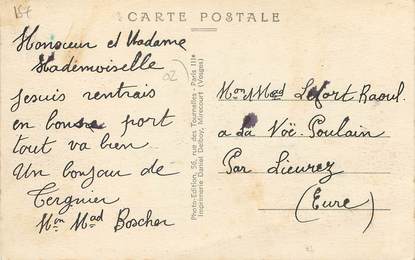 157
CARTE POSTALE
Monsieur et Madame
Mademoiselle
Jesuis rentrais
en bonne port
tout va bien
Un bonjour de
Tergnier
Mon Mad Boscher
Photo-Edition, 56, rue des Tournelles - Paris IIIe
Imprimerie Daniel Delboy, Mirecourt (Vosges)
Mon Mad Lefort Raoul.
a la Voë-Poulain
Par Lieurez
(Eure)